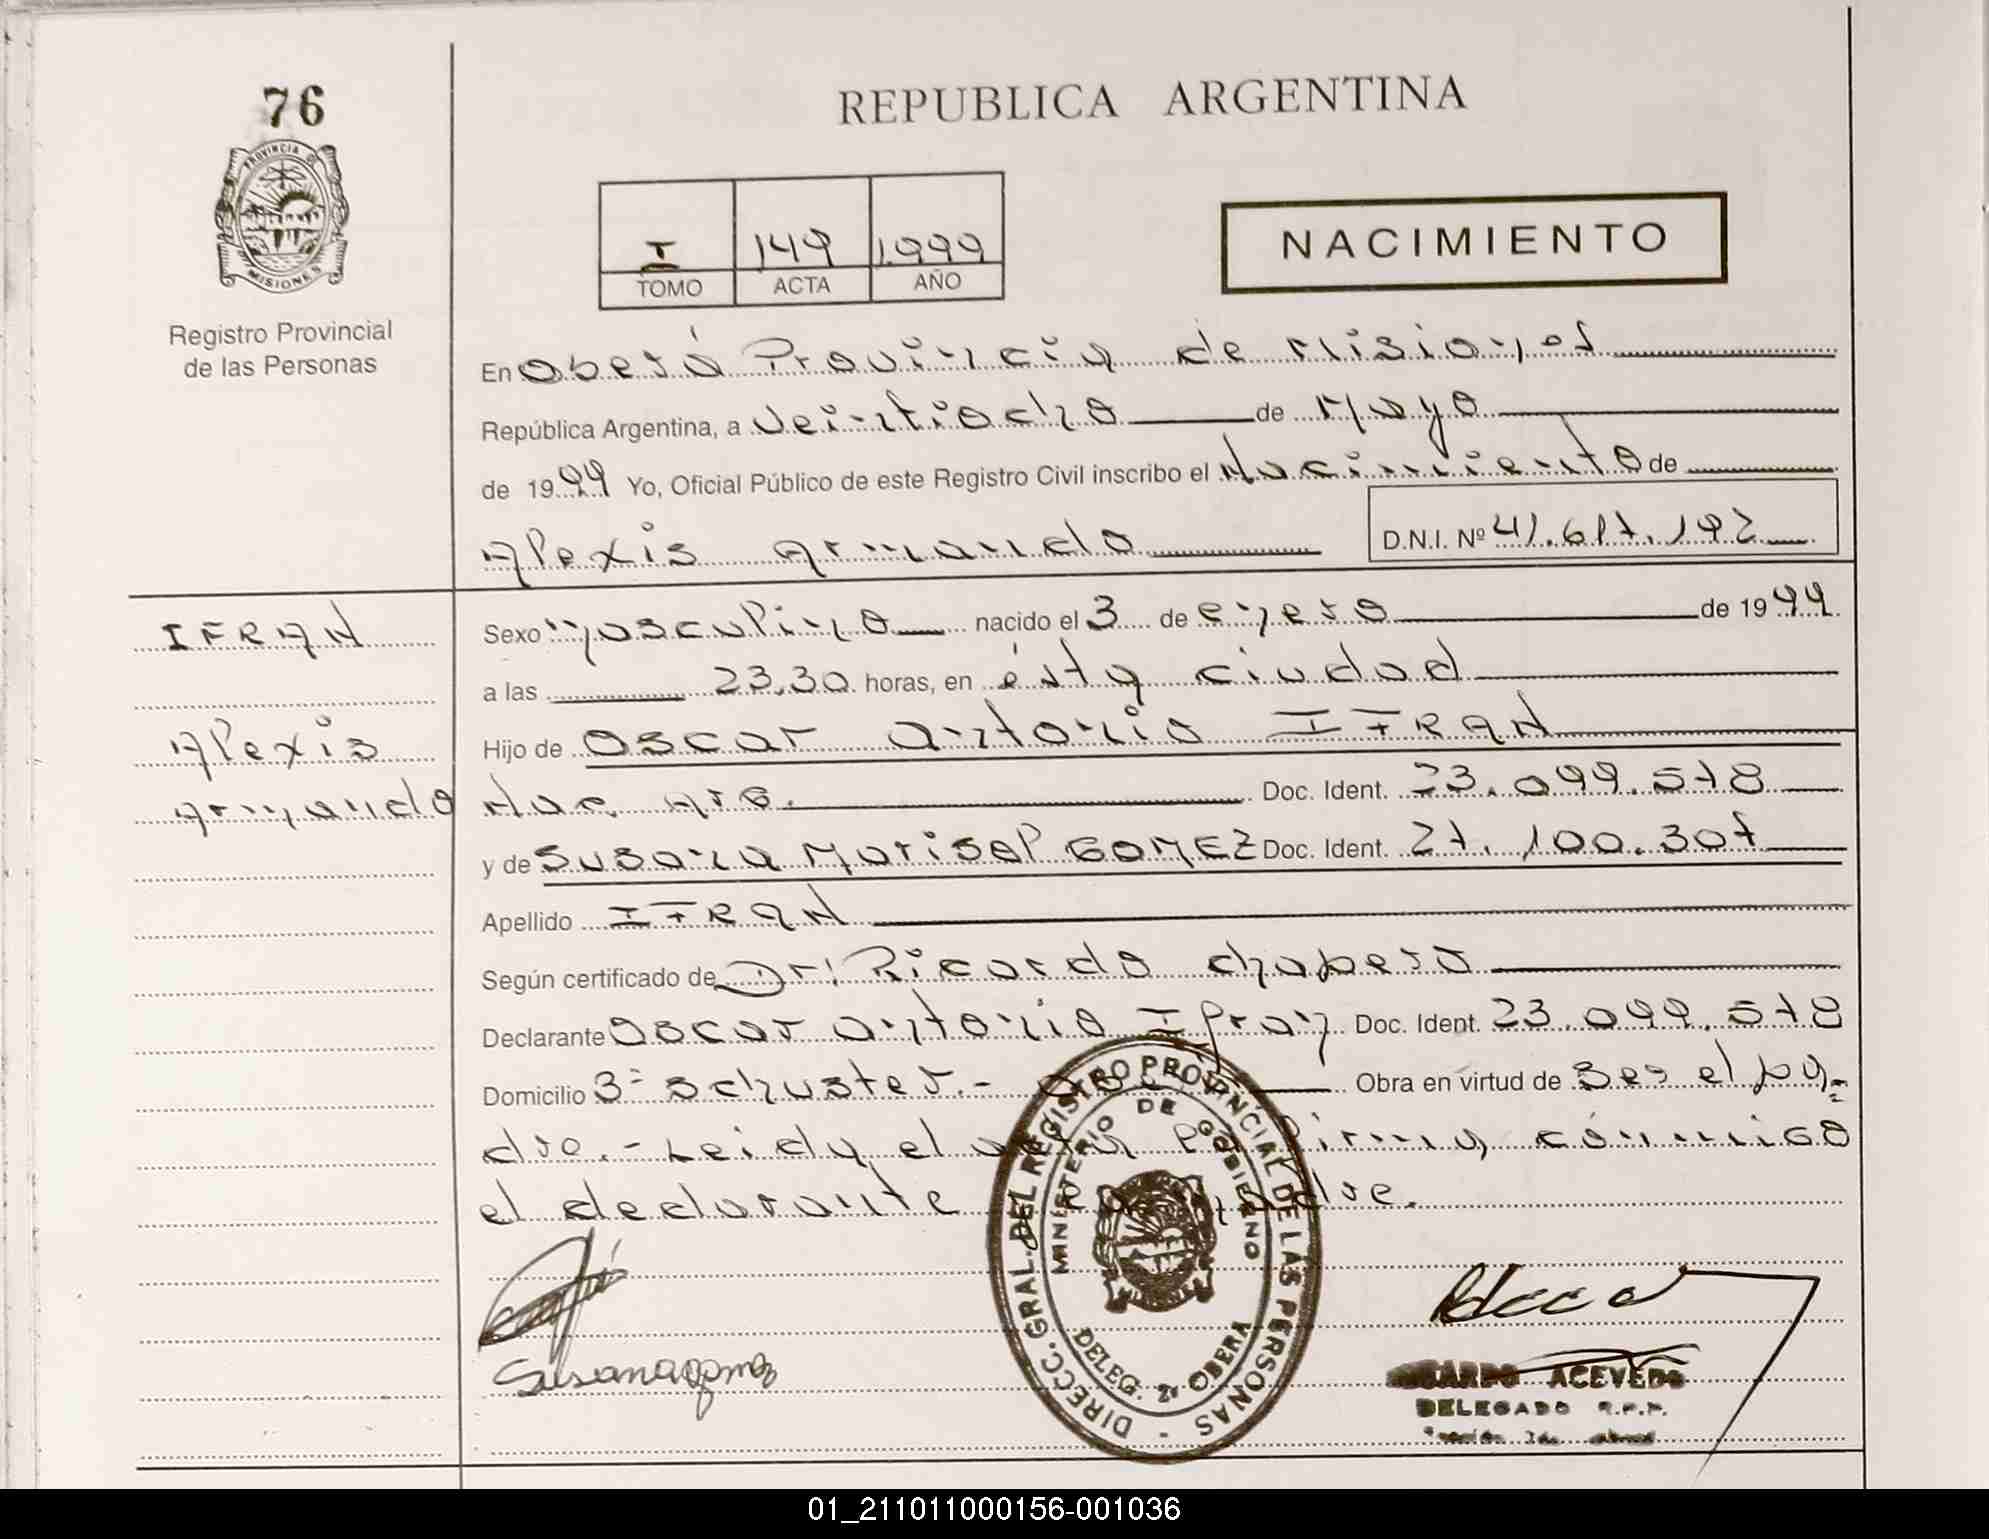 76
REPUBLICA ARGENTINA
PROVINCIA DE
MISIONES
Registro Provincial
de las Personas
I 149 1.999
TOMO ACTA AÑO
NACIMIENTO
En Oberá Provincia de Misiones
República Argentina, a Veintiocho de Mayo
de 1999 Yo, Oficial Público de este Registro Civil inscribo el Nacimiento de
Alexis Armando D.N.I. Nº 41.617.192
IFRAN
Alexis
Armando
Sexo Masculino nacido el 3 de enero de 1999
a las 23,30 horas, en ésta ciudad
Hijo de Oscar Antonio IFRAN
Nac. Arg. Doc. Ident. 23.099.578
y de Susana Marisel GOMEZ Doc. Ident. 27.100.307
Apellido IFRAN
Según certificado de Dr: Ricardo
Declarante Oscar Antonio Ifran Doc. Ident. 23.099.578
Domicilio 3- Schuster.- Obra en virtud de Ser el pa=
dre.- Leida el firma cónmigo
el declarante
DIRECC. GRAL. DEL REGISTRO PROVINCIAL DE LAS PERSONAS
MINISTERIO DE GOBIERNO
DELEG. 2ª OBERA
Susana Gomez
ACEVEDO
DELEGADO R.P.P.
01_211011000156-001036